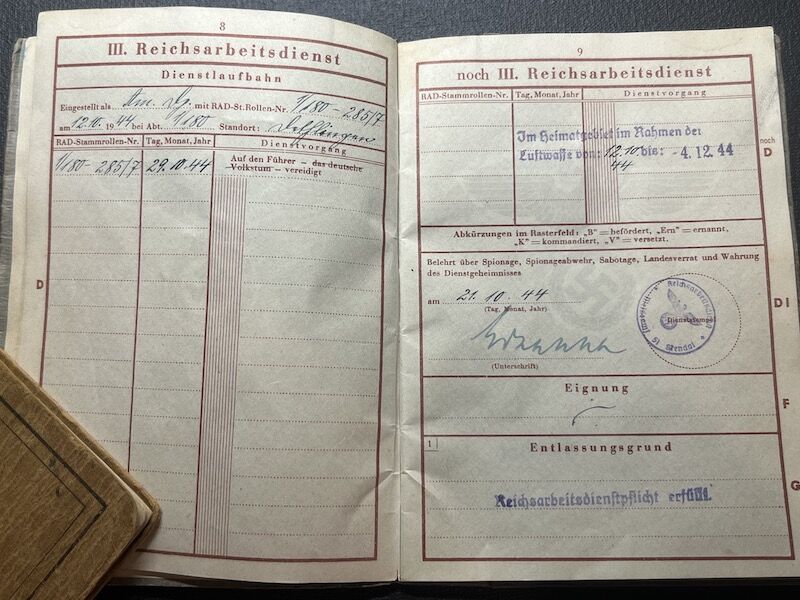 8
III. Reichsarbeitsdienst
Dienstlaufbahn
Eingestellt als mit RAD-St.Rollen-Nr. 1/180 - 285/7
am 12.10. 1944 bei Abt. 1/180 Standort:
RAD-Stammrollen-Nr. Tag, Monat, Jahr Dienstvorgang
1/180- 285/7 29.10.44 Auf den Führer – das deutsche
Volkstum – vereidigt
D
9
noch III. Reichsarbeitsdienst
RAD-Stammrollen-Nr. Tag, Monat, Jahr Dienstvorgang
Im Heimatgebiet im Rahmen der
Luftwaffe von: 12.10. bis: - 4. 12. 44
44
noch
D
Abkürzungen im Rasterfeld: „B" = befördert, „Ern" = ernannt,
„K" = kommandiert, „V" = versetzt.
Belehrt über Spionage, Spionageabwehr, Sabotage, Landesverrat und Wahrung
des Dienstgeheimnisses
am 21.10.44
(Tag, Monat, Jahr)
Dienststempel
Stendal
(Unterschrift)
DI
Eignung
F
1
Entlassungsgrund
Reichsarbeitsdienstpflicht erfüllt.
G